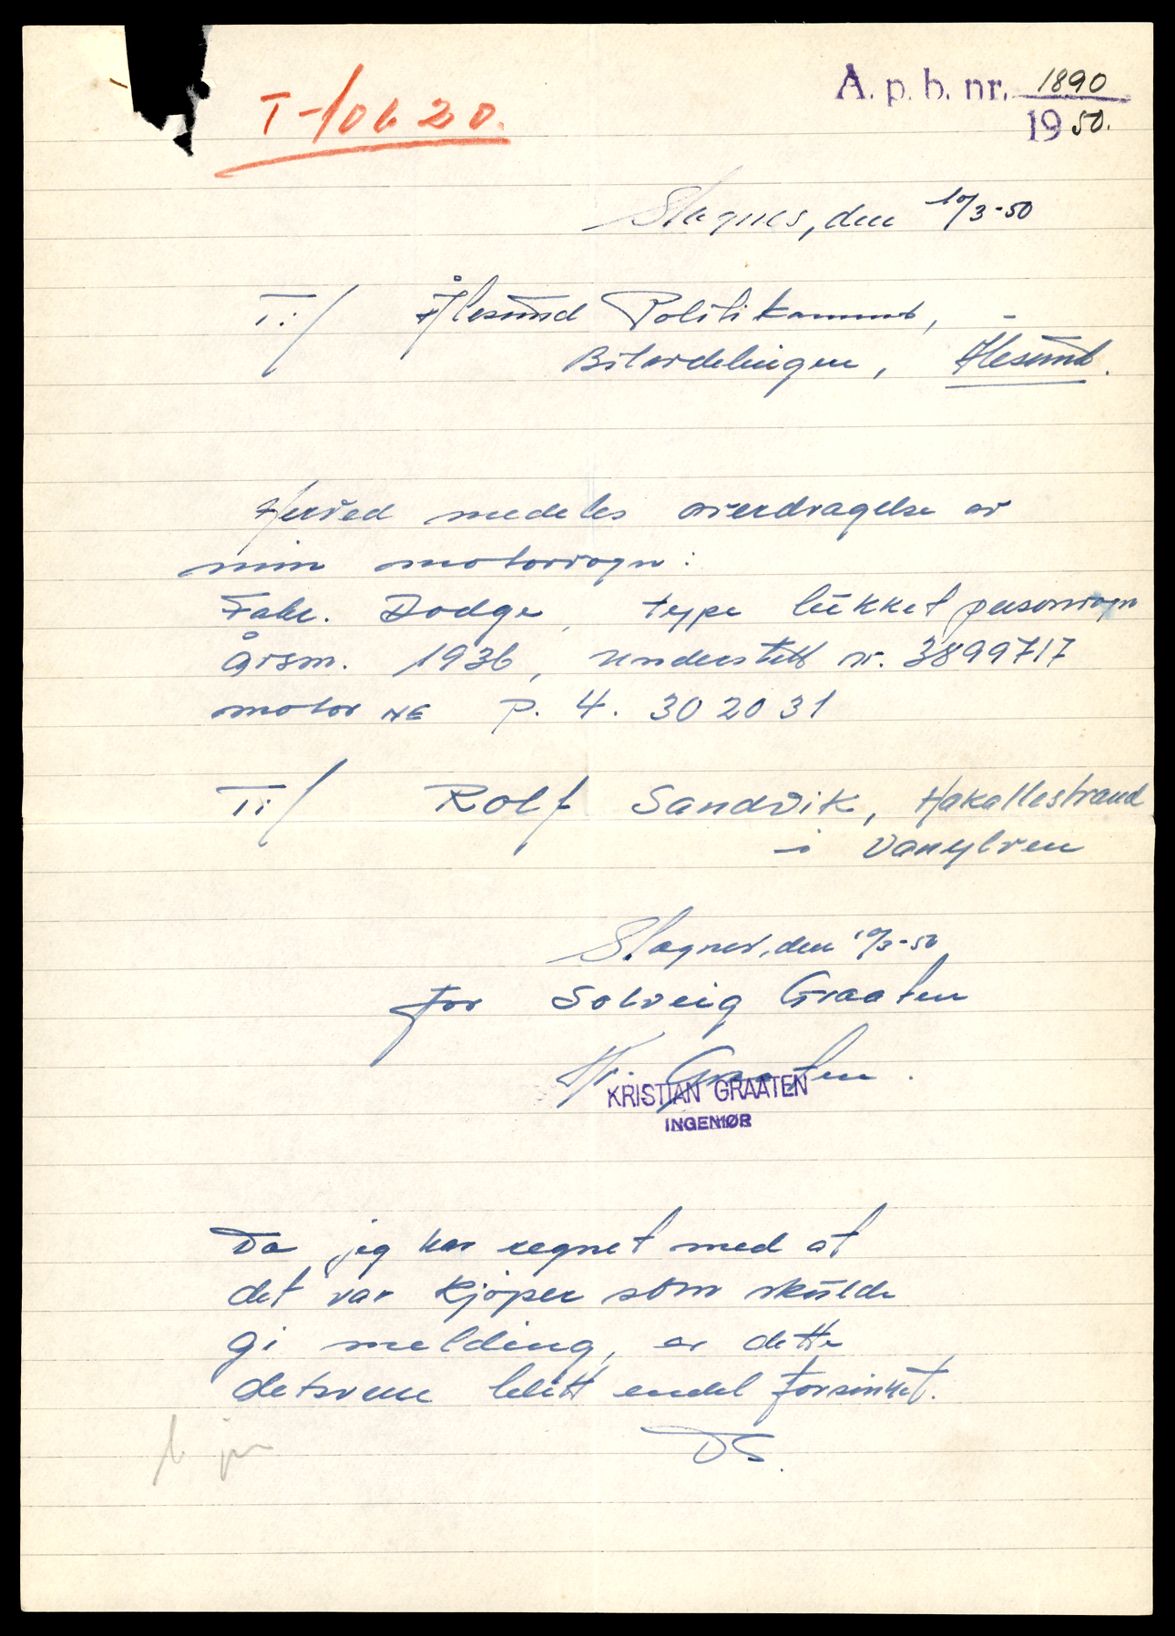 T-10620.
A. p. b. nr. 1890
1950.
Slagnes, den 10/3-50
Til Ålesund Politikammer,
Bilavdelingen, Ålesund.
Herved medeles overdragelse av
min motorvogn:
Fabr. Dodge, type lukket personvogn
Årsm. 1936, understell nr. 3899717
motor NE P. 4. 302031
Til Rolf Sandvik, Hakallestrand
i Vanylven
Slagnes, den 10/3-50
for Solveig Graaten
Kr. Graaten.
KRISTIAN GRAATEN
INGENIØR
Da jeg har regnet med at
det var kjøper som skulde
gi melding, er dette
desverre blitt endel forsinket.
DS.